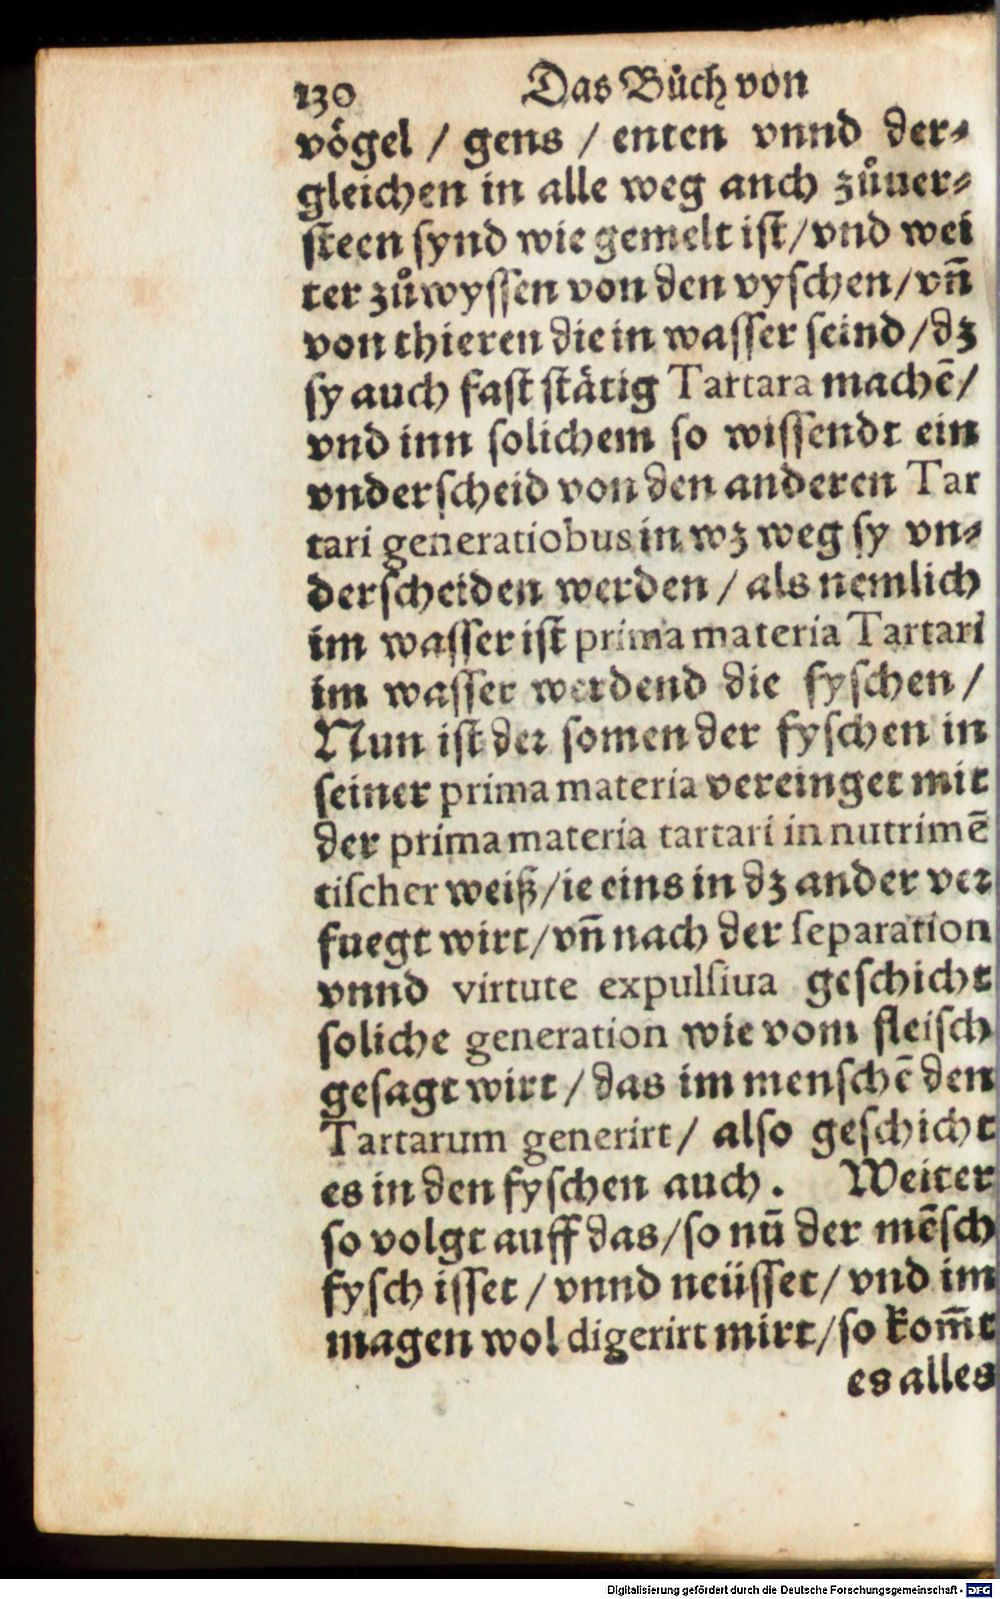 130 Das Bůch von
vögel / gens / enten vnnd der⸗
gleichen in alle weg anch zůuer⸗
steen synd wie gemelt ist/vnd wei
ter zůwyssen von den vyschen/vn̄
von thieren die in wasser seind/dz
sy auch fast stätig Tartara machē/
vnd inn solichem so wissendt ein
vnderscheid von den anderen Tar
tari generatiobus in wz weg sy vn⸗
derscheiden werden / als nemlich
im wasser ist prima materia Tartari
im wasser werdend die fyschen /
Nun ist der somen der fyschen in
seiner prima materia vereinget mit
der prima materia tartari in nutrimē
tischer weiß/ie eins in dz ander ver
fuegt wirt/vn̄ nach der separation
vnnd virtute expulsiua geschicht
soliche generation wie vom fleisch
gesagt wirt / das im menschē den
Tartarum generirt/ also geschicht
es in den fyschen auch. Weiter
so volgt auff das/so nū der mēsch
fysch isset / vnnd neüsset/ vnd im
magen wol digerirt mirt/so kom̄t
es alles
Digitalisierung gefördert durch die Deutsche Forschungsgemeinschaft - DFG